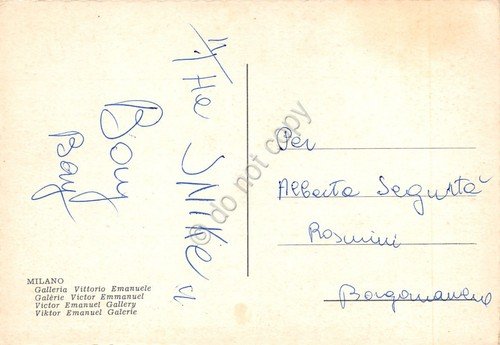 "The SNIKE"
Boy
Bay
MILANO
Galleria Vittorio Emanuele
Galérie Victor Emmanuel
Victor Emanuel Gallery
Viktor Emanuel Galerie
Per
Alberta Segurtà
Rosmini
Borgomanero
© do not copy